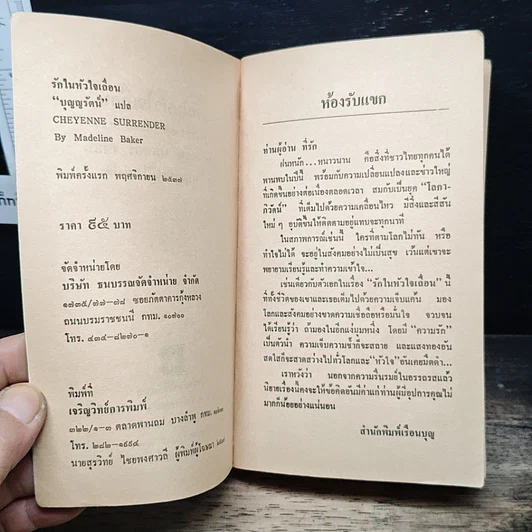 รักในหัวใจเถื่อน
"บุญญรัตน์" แปล
CHEYENNE SURRENDER
By Madeline Baker
พิมพ์ครั้งแรก พฤศจิกายน ๒๕๓๗
ราคา ๕๕ บาท
จัดจำหน่ายโดย
บริษัท ธนบรรณจัดจำหน่าย จำกัด
๑๗๓๕/๗๗-๗๘ ซอยภัตตาคารกุ้งหลวง
ถนนบรมราชชนนี กทม. ๑๐๗๐๐
โทร. ๔๓๔-๘๒๗๐-๑
พิมพ์ที่
เจริญวิทย์การพิมพ์
๓๒๒/๑-๓ ตลาดพานถม บางลำพู กทม.
โทร. ๒๘๒-๑๙๙๔
นายสุรวิทย์ ไชยพงศาวลี ผู้พิมพ์ผู้โฆษณา
ห้องรับแขก
ท่านผู้อ่าน ที่รัก
ฝนหนัก...หนาวนาน คือสิ่งที่ชาวไทยทุกคนได้
พานพบในปีนี้ พร้อมกับความเปลี่ยนแปลงและข่าวใหญ่
ที่เกิดขึ้นอย่างต่อเนื่องตลอดเวลา สมกับเป็นยุค "โลกา-
ภิวัตน์" ที่เต็มไปด้วยความเคลื่อนไหว มีสิ่งและสีสัน
ใหม่ ๆ อุบัติขึ้นให้ติดตามอยู่แทบจะทุกนาที
ในสภาพการณ์เช่นนี้ ใครที่ตามโลกไม่ทัน หรือ
ทำใจไม่ได้ จะอยู่ในสังคมอย่างไม่เป็นสุข เว้นแต่เขาจะ
พยายามเรียนรู้และทำความเข้าใจ...
เช่นเดียวกับตัวเอกในเรื่อง "รักในหัวใจเถื่อน" นี้
ที่ทั้งชีวิตของเขาและเธอเต็มไปด้วยความเจ็บแค้น มอง
โลกและสังคมอย่างขาดความเชื่อถือหรือมั่นใจ จวบจน
ได้เรียนรู้ว่า ถ้ามองในอีกแง่มุมหนึ่ง โดยมี "ความรัก"
เป็นตัวนำ ความเจ็บความช้ำก็จะสลาย และแสงทองอัน
สดใสก็จะสาดส่องไปทั่วโลกและ "หัวใจ" อันเคยมืดดำ...
เราหวังว่า นอกจากความรื่นรมย์ในอรรถรสแล้ว
นิยายเรื่องนี้คงจะให้ข้อคิดอันมีค่าแก่ท่านผู้มีอุปการคุณไม่
มากก็น้อยอย่างแน่นอน
สำนักพิมพ์เรือนบุญ